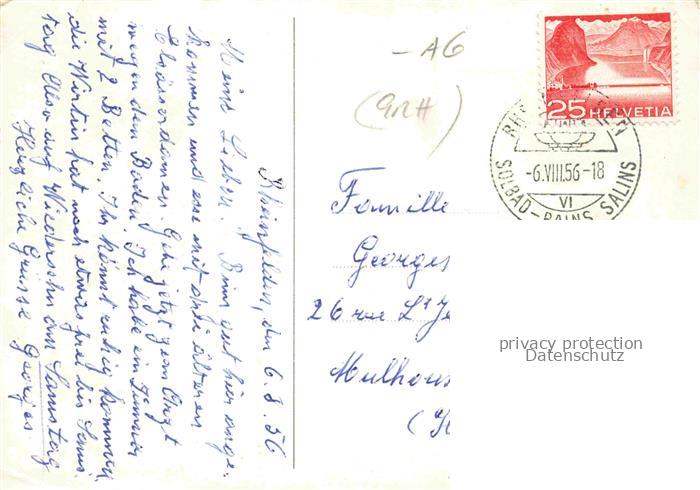 Rheinfelden, den 6.8.56
Meine Lieben. Bin gut hier ange-
kommen und esse mit drei älteren
Elsässerdamen. Gehe jetzt zum Arzt
wegen dem Baden. Ich habe ein Zimmer
mit 2 Betten. Ihr könnt ruhig kommen
die Wirtin hat noch etwas frei bis Sams-
tag. Also auf Wiedersehn am Samstag
Herzliche Grüsse Georges.
- AG
(GRH)
25 HELVETIA
RHEINFELDEN
-6.VIII.56-18
VI
SOLBAD-BAINS SALINS
Famille
Georges
26 rue
Mulhous
(H
privacy protection
Datenschutz